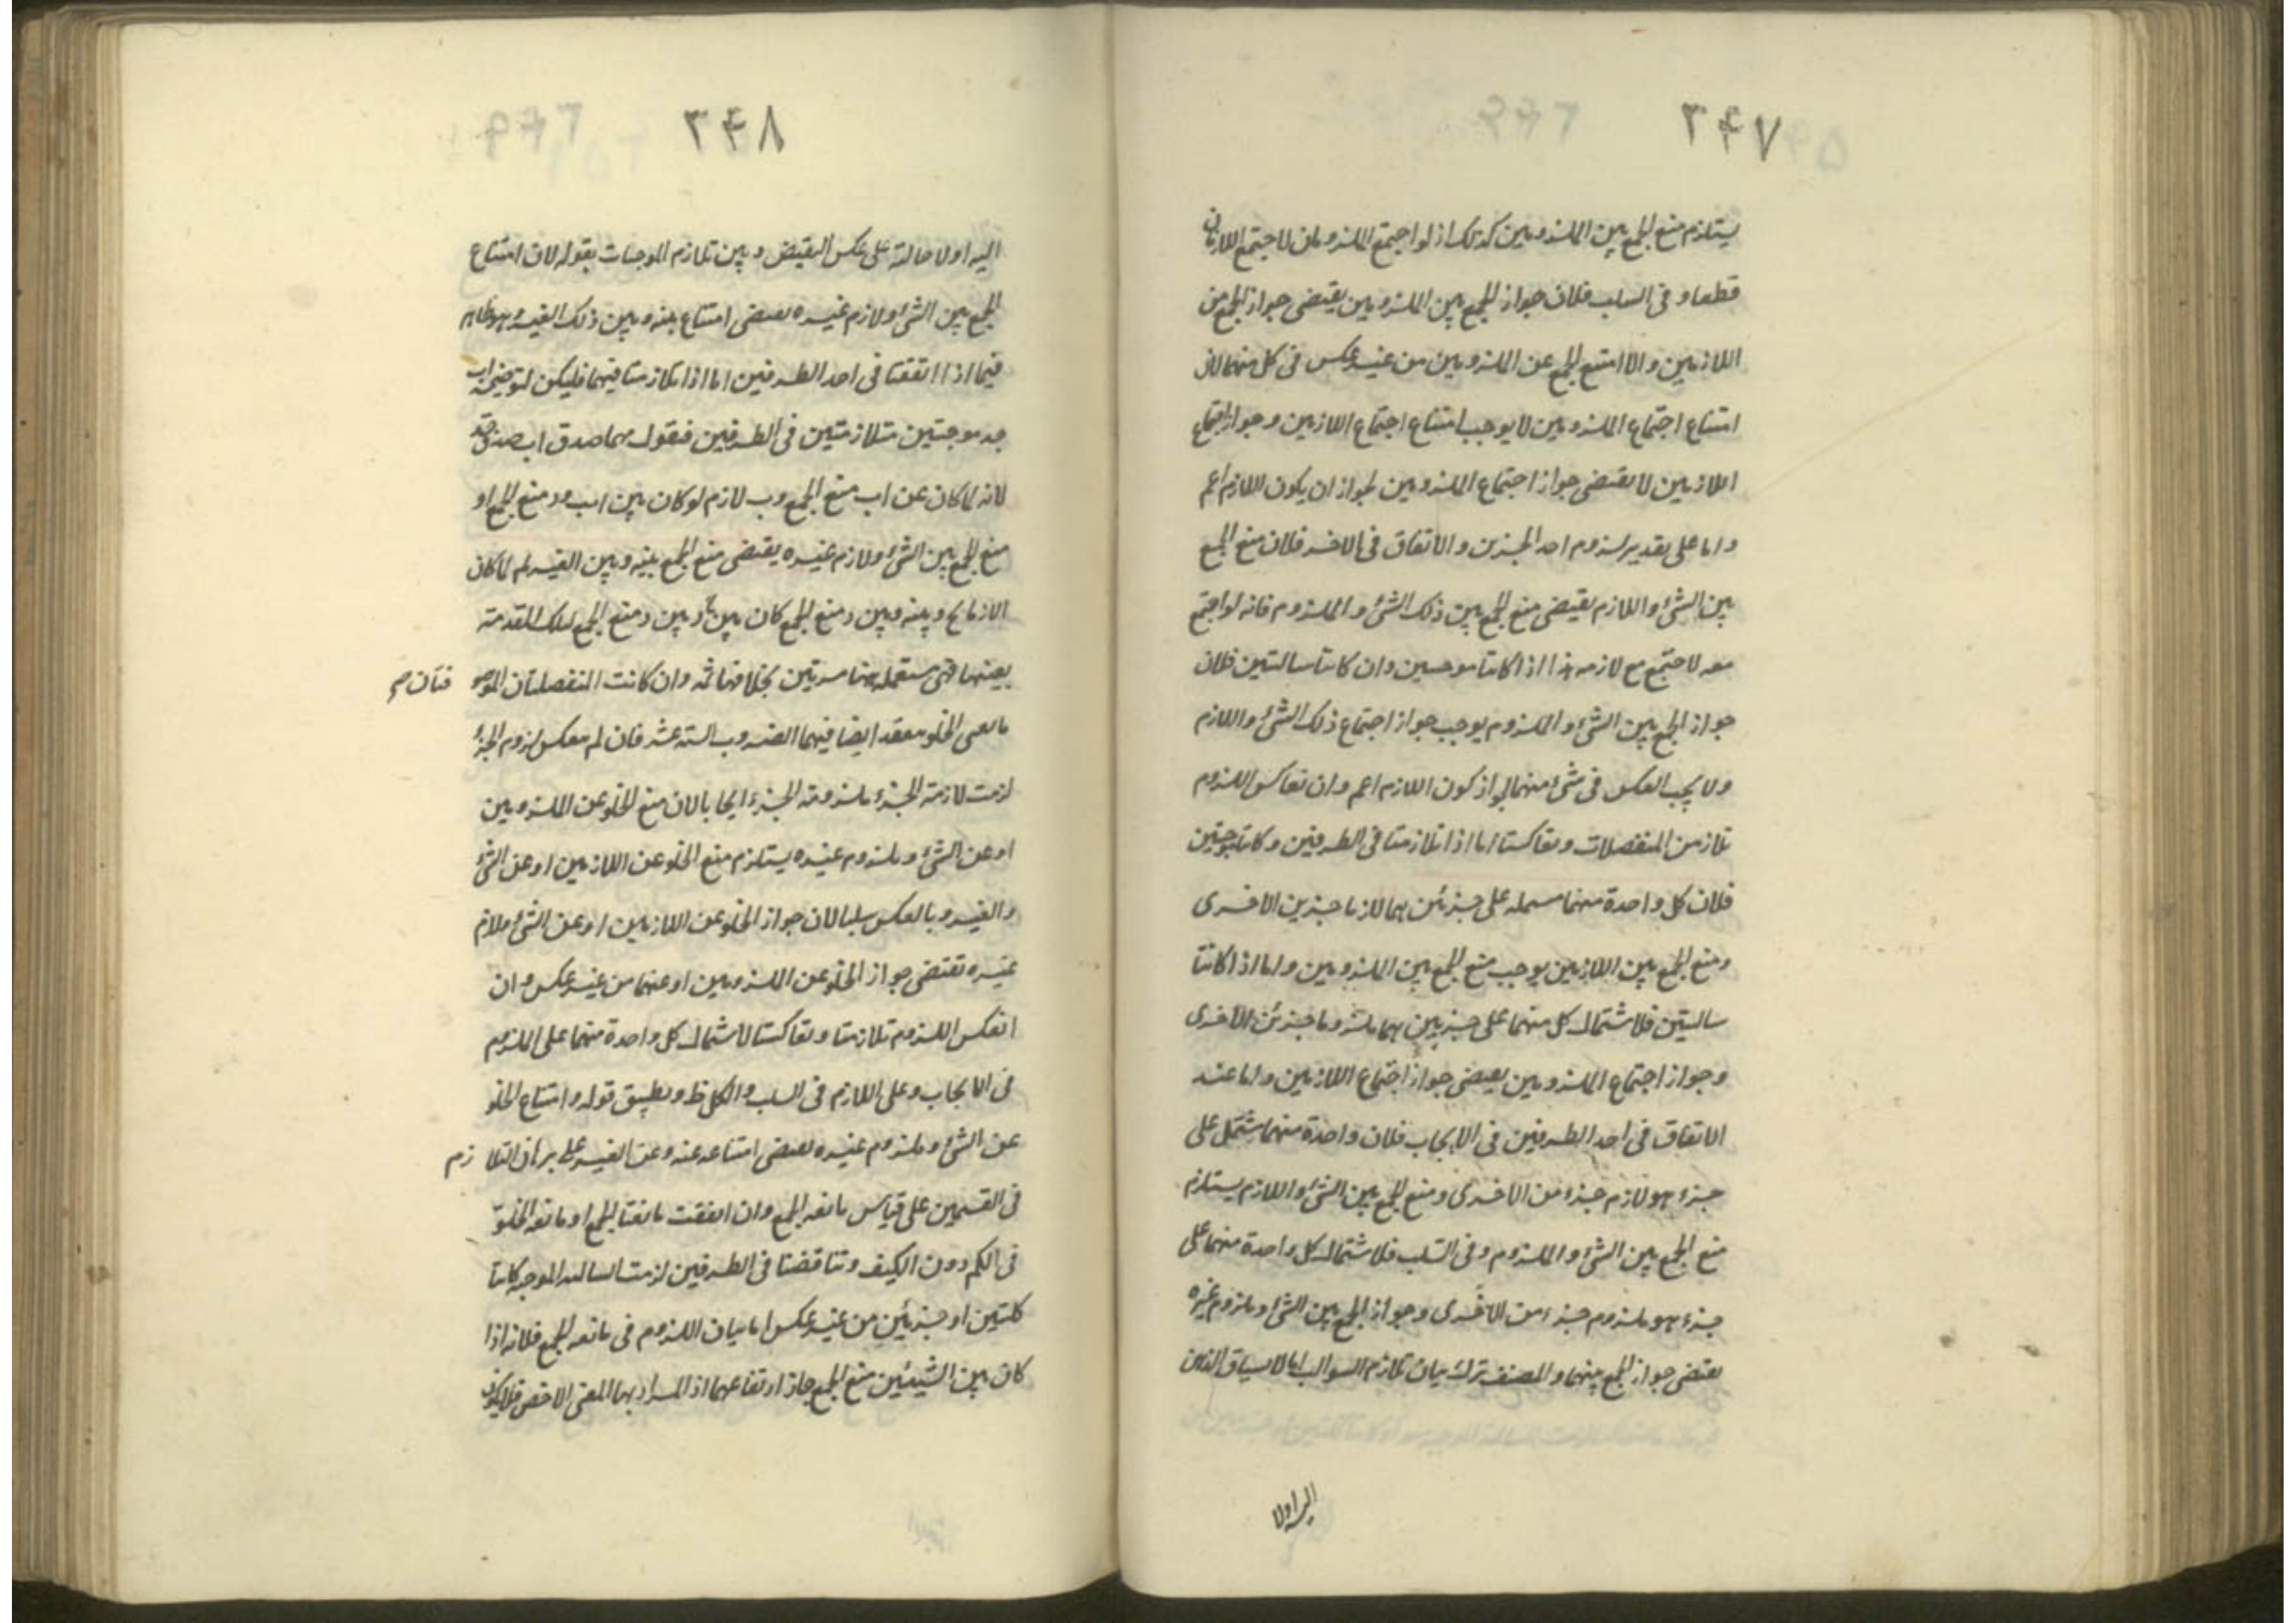 ٣٤٧
يستلزم منع الجمع بين الملزومين كذلك اذ لو اجتمع الملزومان لاجتمع اللازمان
قطعا وفى السلب فلان جواز الجمع بين الملزومين يقتضى جواز الجمع من
اللازمين والا امتنع الجمع عن الملزومين من غير عكس فى كل منهما لان
امتناع اجتماع الملزومين لا يوجب امتناع اجتماع اللازمين وجواز اجتماع
اللازمين لا يقتضى جواز اجتماع الملزومين لجواز ان يكون اللازم اعم
واما على تقدير لزوم احد الجزئين والاتفاق فى الاخر فلان منع الجمع
بين الشئ واللازم يقتضى منع الجمع بين ذلك الشئ والملزوم فانه لو اجتمع
معه لاجتمع مع لازمه هذا اذا كانتا موجبتين وان كانتا سالبتين فلان
جواز الجمع بين الشئ والملزوم يوجب جواز اجتماع ذلك الشئ واللازم
ولا يجب العكس فى شئ منهما لجواز كون اللازم اعم وان تعاكس اللزوم
تلازمن المنفصلات وتعاكستا اما اذا تلازمتا فى الطرفين وكانتا موجبتين
فلان كل واحدة منهما مشتمله على جزئين هما لازما جزئين الاخرى
ومنع الجمع بين اللازمين يوجب منع الجمع بين الملزومين واما اذا كانتا
سالبتين فلاشتمال كل منهما على جزئين هما ملزوما جزئى الاخرى
وجواز اجتماع الملزومين يقتضى جواز اجتماع اللازمين واما عند
الاتفاق فى احد الطرفين فى الايجاب فلان واحدة منهما يشتمل على
جزء هو لازم جزء من الاخرى ومنع الجمع بين الشئ واللازم يستلزم
منع الجمع بين الشئ والملزوم وفى السلب فلاشتمال كل واحدة منهما على
جزء هو ملزوم جزء من الاخرى وجواز الجمع بين الشئ وملزوم غيره
يقتضى جواز الجمع بينهما والمصنف ترك بيان تلازم السوالب اما لانسياق الذهن
اليه اولا
٣٤٨
اليه او لاحالته على عكس النقيض وبين تلازم الموجبات بقوله لان امتناع
الجمع بين الشئ ولازم غيره يقتضى امتناع بينه وبين ذلك الغير وهو ظاهر
فيما اذا اتفقتا فى احد الطرفين اما اذا تلازمتا فيهما فليكن لتوضيحه اب
جد موجبتين متلازمتين فى الطرفين فنقول مهما صدق اب صدق جد
لانه لما كان عن اب منع الجمع وب لازم لو كان بين اب ود منع الجمع او
منع الجمع بين الشئ ولازم غيره يقتضى منع الجمع بينه وبين الغير ثم لما كان
الازما ج وبينه وبين د منع الجمع كان بين ج وبين د منع الجمع لتلك المقدمة
بعينها فهى مستعمله هنا مرتين بخلافها ثمه وان كانت المنفصلتان الموجو فتان صح
مانعتى الخلو معقد ايضا فيهما الضروب الستة عشر فان لم معكس لزوم الجزء
لزمت لازمة الجزء ملزومة الجزء ايجابا لان منع الخلو عن الملزومين
او عن الشئ وملزوم غيره يستلزم منع الخلو عن اللازمين او عن الشئ
والغير وبالعكس سلبا لان جواز الخلو عن اللازمين او عن الشئ ولازم
غيره تقتضى جواز الخلو عن الملزومين او عنهما من غير عكس وان
انعكس اللزوم تلازمتا وتعاكستا لاشتمال كل واحدة منهما على الملزوم
فى الايجاب وعلى اللازم فى السلب والكل ظ وتطبيق قوله وامتناع الخلو
عن الشئ وملزوم غيره يقتضى امتناعه عنه وعن الغير على برهان التلا زم
فى القسمين على قياس مانعه الجمع وان اتفقت مانعتا الجمع او مانعه الخلو
فى الكم دون الكيف وتناقضتا فى الطرفين لزمت السالبه الموجبه كانتا
كليتين او جزئيتين من غير عكس اما بيان اللزوم فى مانعه الجمع فلانه اذا
كان بين الشيئين منع الجمع جاز ارتفاعهما اذ المراد بها المعنى الاخص فلا يكون